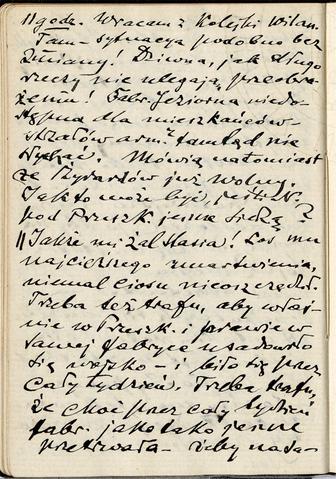 11 godz. Wracam z Kolejki Wilan.
Tam – sytuacja podobno bez
zmiany! Dziwna, jak długo
rzeczy nie ulegają przeobra-
żeniu! Fabr. Jeziorna niedo-
stępna dla mieszkańców –
strzałów arm. tamtąd nie
słychać. Mówią natomiast
że Żyrardów już wolny.
Jak to może być, jeśli N.
pod Pruszk. jeszcze siedzą?
Jakże mi żal Stasia! Los mu
najcięższego zmartwienia,
niemal ciosu nie oszczędził.
Trzeba też trafu, aby właś-
nie w Pruszk. i prawie w
samej fabryce usadowiło
się wojsko – i biło się przez
cały tydzień. Trzeba trafu,
że choć przez cały tydzień
fabr. jako tako jeszcze
przetrwała – żeby nada-